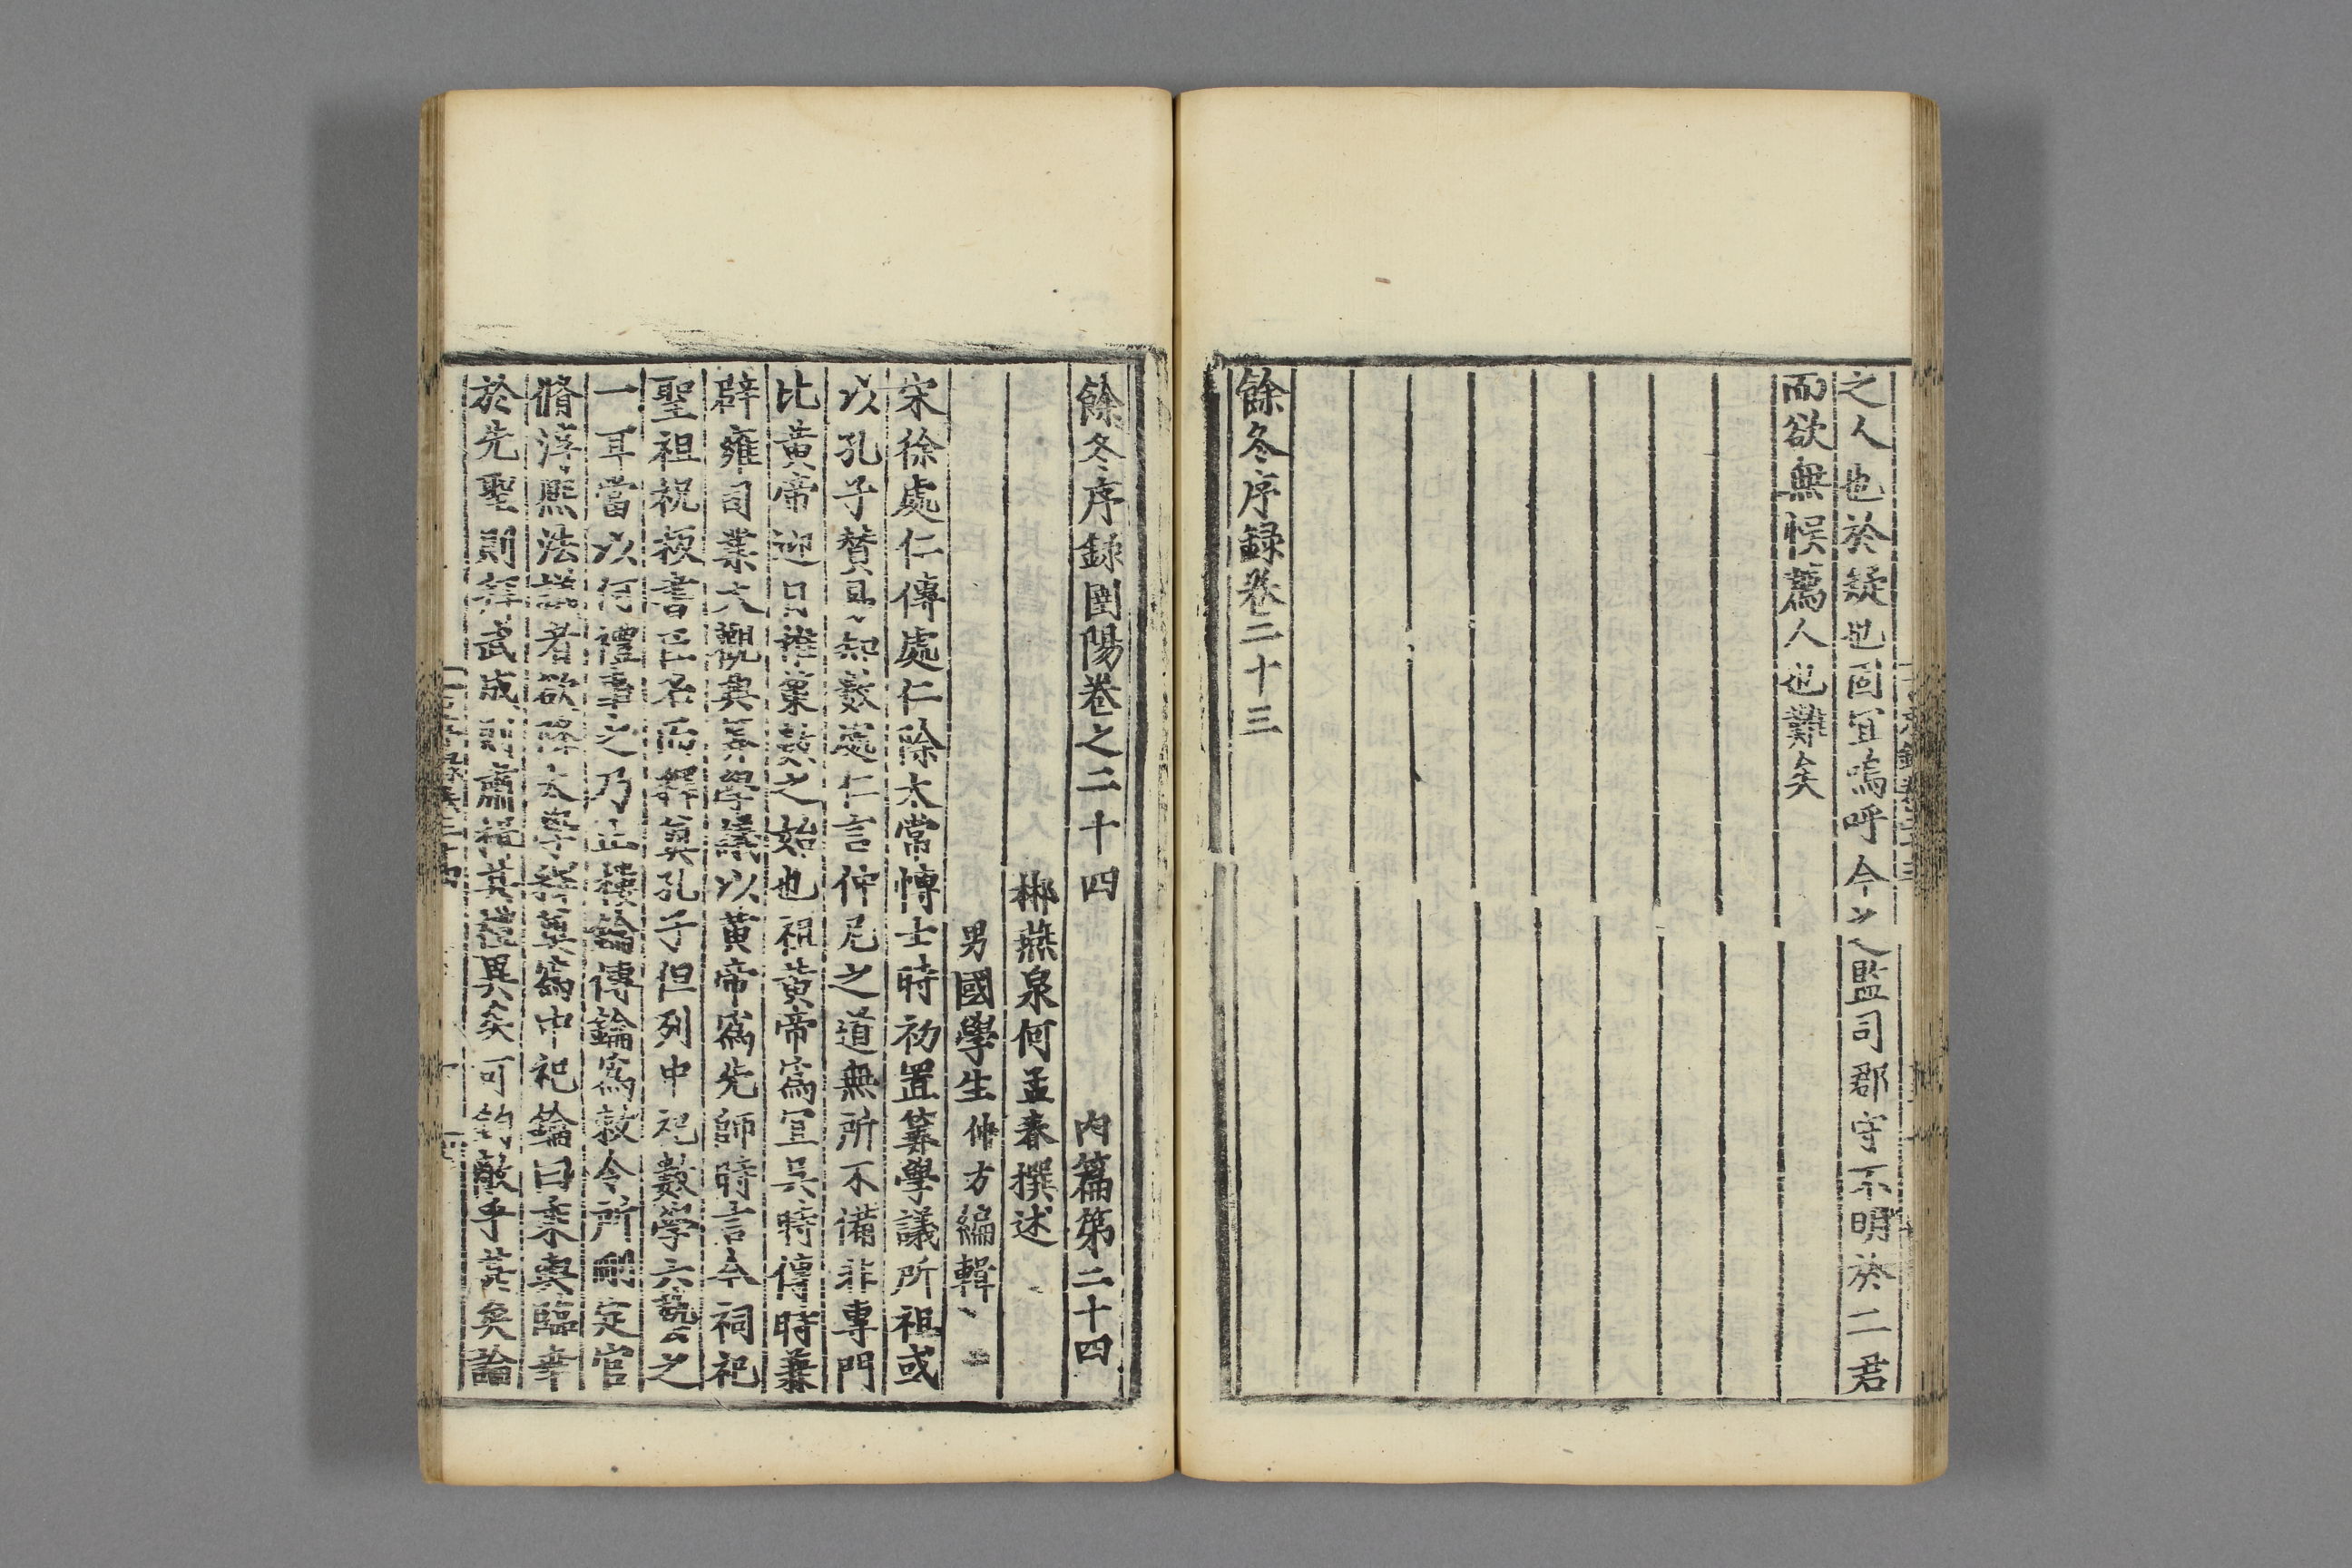 之人也於疑也固宜嗚呼今之監司郡守不明於二君
而欲無悞薦人也難矣
餘冬序録卷二十三
餘冬序録閏陽卷之二十四 内篇第二十四
郴燕泉何孟春撰述
男國學生仲方編輯
宋徐處仁傳處仁除太常愽士時初置筭學議所祖或
以孔子賛易知數處仁言仲尼之道無所不備非專門
比黄帝迎日推策數之始也祖黄帝爲宜吴時傳時兼
辟雍司業大觀興筭學議以黄帝爲先師時言今祠祀
聖祖祝板書臣名而釋奠孔子但列中祀數學六藝之
一耳當以何禮事之乃止樓鑰傳鑰爲敕令所刪定官
脩淳熙法議者欲降太學釋奠爲中祀鑰曰乘輿臨幸
於先聖則拜武成則肅揖其禮異矣可鈞敵乎 矣論